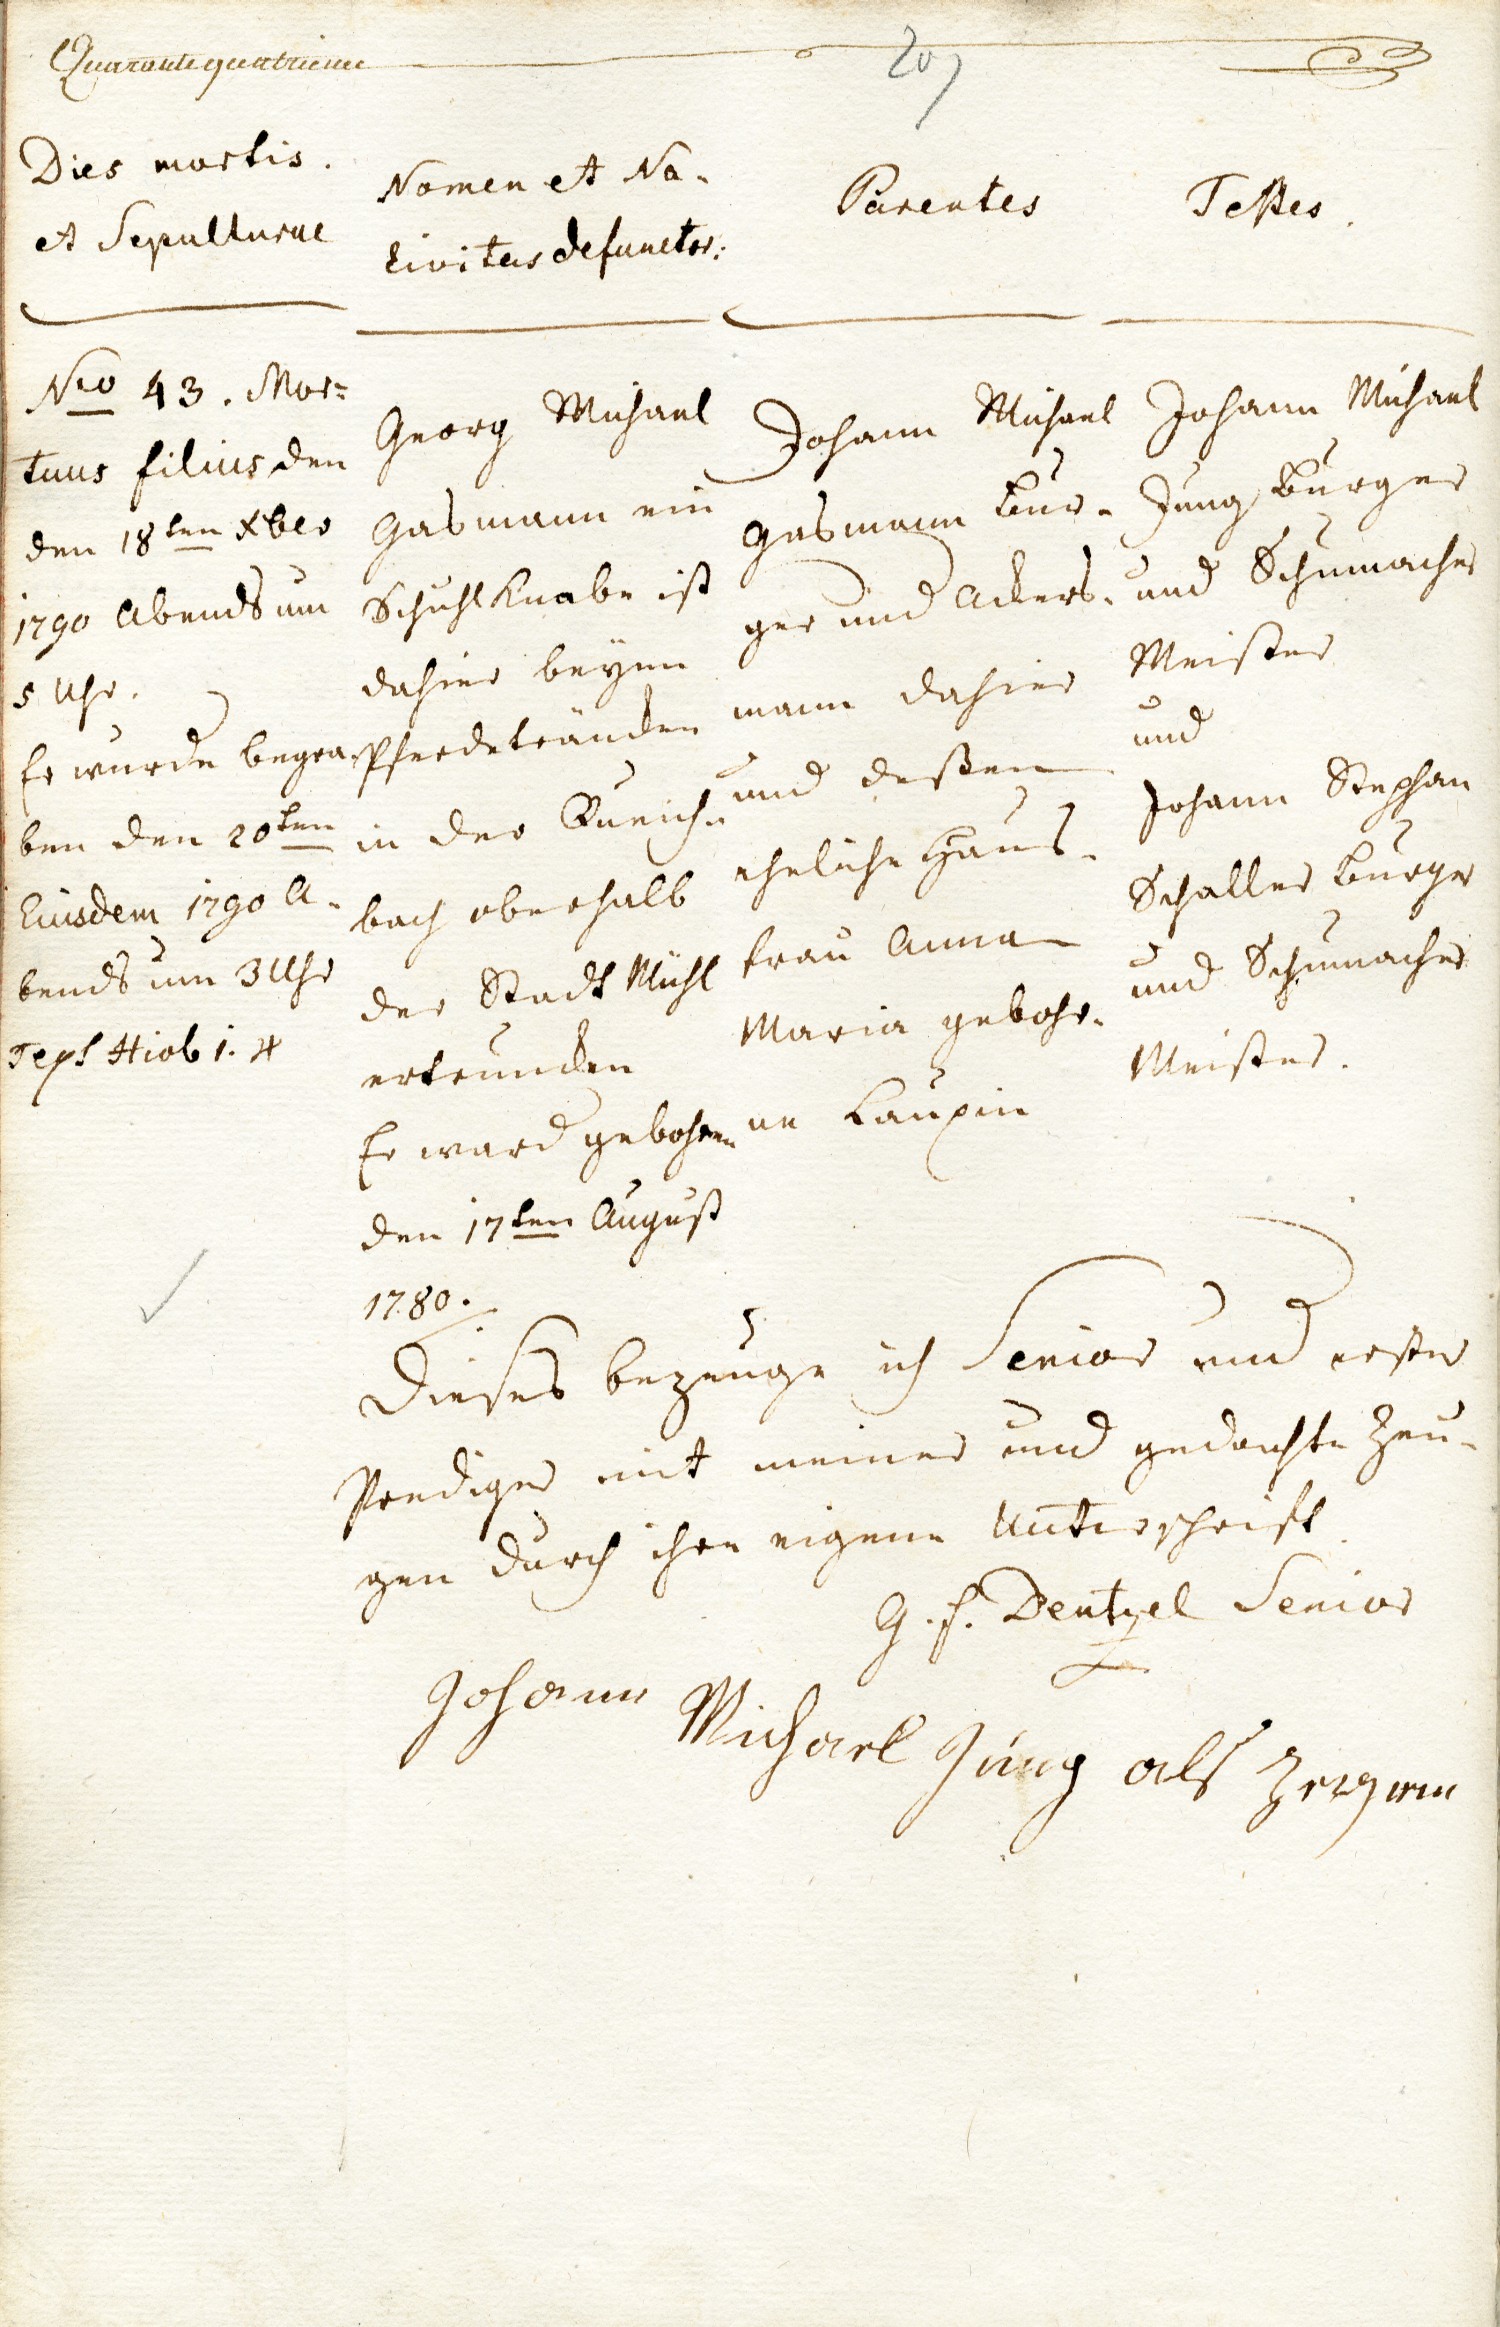 Quarante quatrieme
207
Dies mortis.
et Sepulturae
Nro 43. Mor=
tuus filius den
den 18ten Xber
1790 Abends um
5 Uhr.
Er wurde begra-
ben den 20ten
Eiusdem 1790 A-
bends um 3 Uhr
Text Hiob 1. 4
Nomen et Na-
tivitas defunctor:
Georg Michael
Gasmann ein
Schuhl Knabe ist
dahier beym
Pferdeträncken
in der Queich-
bach oberhalb
der Stadt Mühl
ertruncken
Er ward gebohren
den 17ten August
1780.
Parentes
Johann Michael
Gasmann Bur-
ger und Ackers-
mann dahier
und deßen
eheliche Haus-
frau Anna
Maria gebohr-
ne Lauxin
Testes.
Johann Michael
Jung Burger
und Schumacher
Meister
und
Johann Stephan
Schaller Burger
und Schumacher
Meister.
Dieses bezeuge ich Senior und erster
Prediger mit meiner und gedachte Zeu-
gen durch ihre eigene Unterschrift.
G. F. Dentzel Senior
Johann Michael Jung als